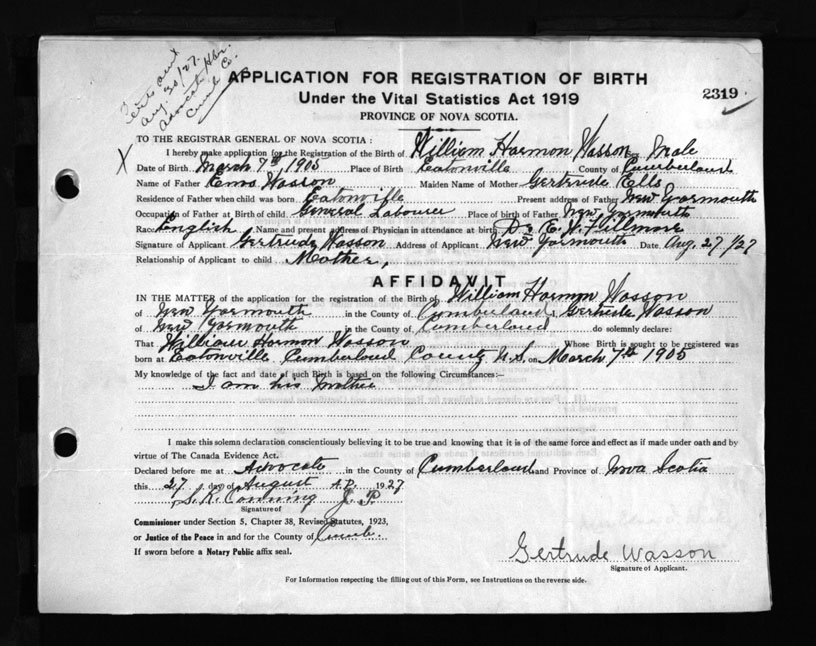 Aug. 30/27.
Advocate Hbr.
Cumb. Co.
APPLICATION FOR REGISTRATION OF BIRTH
2319
Under the Vital Statistics Act 1919
PROVINCE OF NOVA SCOTIA.
TO THE REGISTRAR GENERAL OF NOVA SCOTIA:
X I hereby make application for the Registration of the Birth of William Harmon Wasson Sex Male
Date of Birth March 7th, 1905 Place of Birth Eatonville County of Cumberland
Name of Father Emos Wasson Maiden Name of Mother Gertrude Ells
Residence of Father when child was born Eatonville Present address of Father New Yarmouth
Occupation of Father at Birth of child General Labourer Place of birth of Father New Yarmouth
Race English Name and present address of Physician in attendance at birth Dr. Fillmore
Signature of Applicant Gertrude Wasson Address of Applicant New Yarmouth Date Aug. 27/27
Relationship of Applicant to child Mother,
AFFIDAVIT
IN THE MATTER of the application for the registration of the Birth of William Harmon Wasson
of New Yarmouth in the County of Cumberland I, Gertrude Wasson
of New Yarmouth in the County of Cumberland do solemnly declare:
That William Harmon Wasson Whose Birth is sought to be registered was
born at Eatonville Cumberland County N.S. on March 7th 1905
My knowledge of the fact and date of such Birth is based on the following Circumstances:—
I am his Mother
I make this solemn declaration conscientiously believing it to be true and knowing that it is of the same force and effect as if made under oath and by
virtue of The Canada Evidence Act.
Declared before me at Advocate in the County of Cumberland and Province of Nova Scotia
this 27 day of August A.D. 1927
S. K. J. P.
Signature of
Commissioner under Section 5, Chapter 38, Revised Statutes, 1923,
or Justice of the Peace in and for the County of Cumb.
If sworn before a Notary Public affix seal.
Gertrude Wasson
Signature of Applicant.
For Information respecting the filling out of this Form, see Instructions on the reverse side.